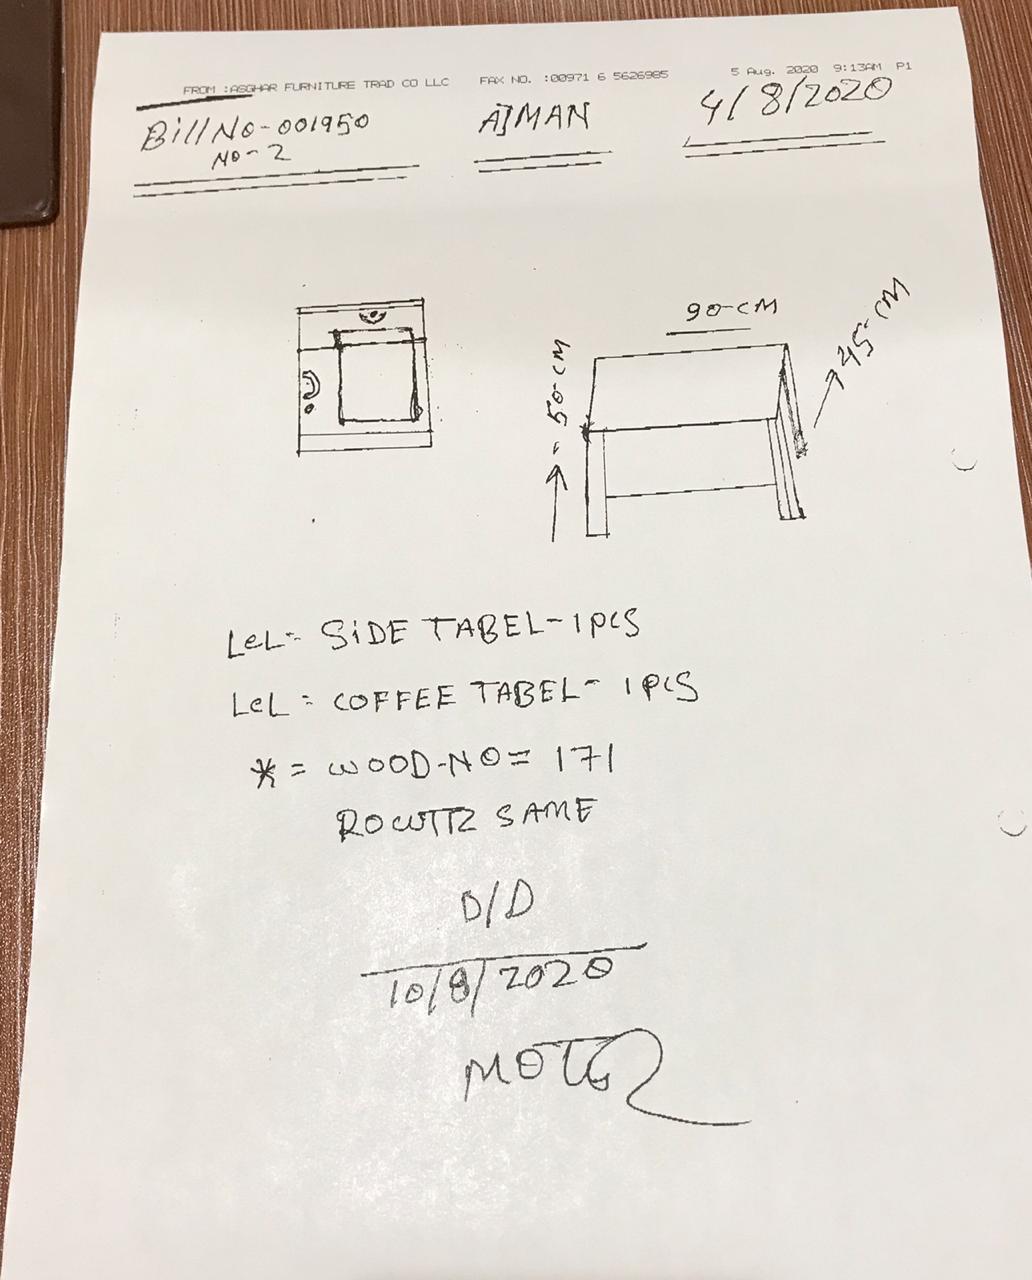 FROM :ASGHAR FURNITURE TRAD CO LLC FAX NO. :00971 6 5626985 5 Aug. 2020 9:13AM P1
Bill No-001950 AJMAN 4/8/2020
NO-2
90-CM
50-CM
45-CM
LeL- SiDE TABEL-1PCS
LeL = COFFEE TABEL- 1PCS
* = WOOD-NO= 171
SAME
D/D
10/8/2020